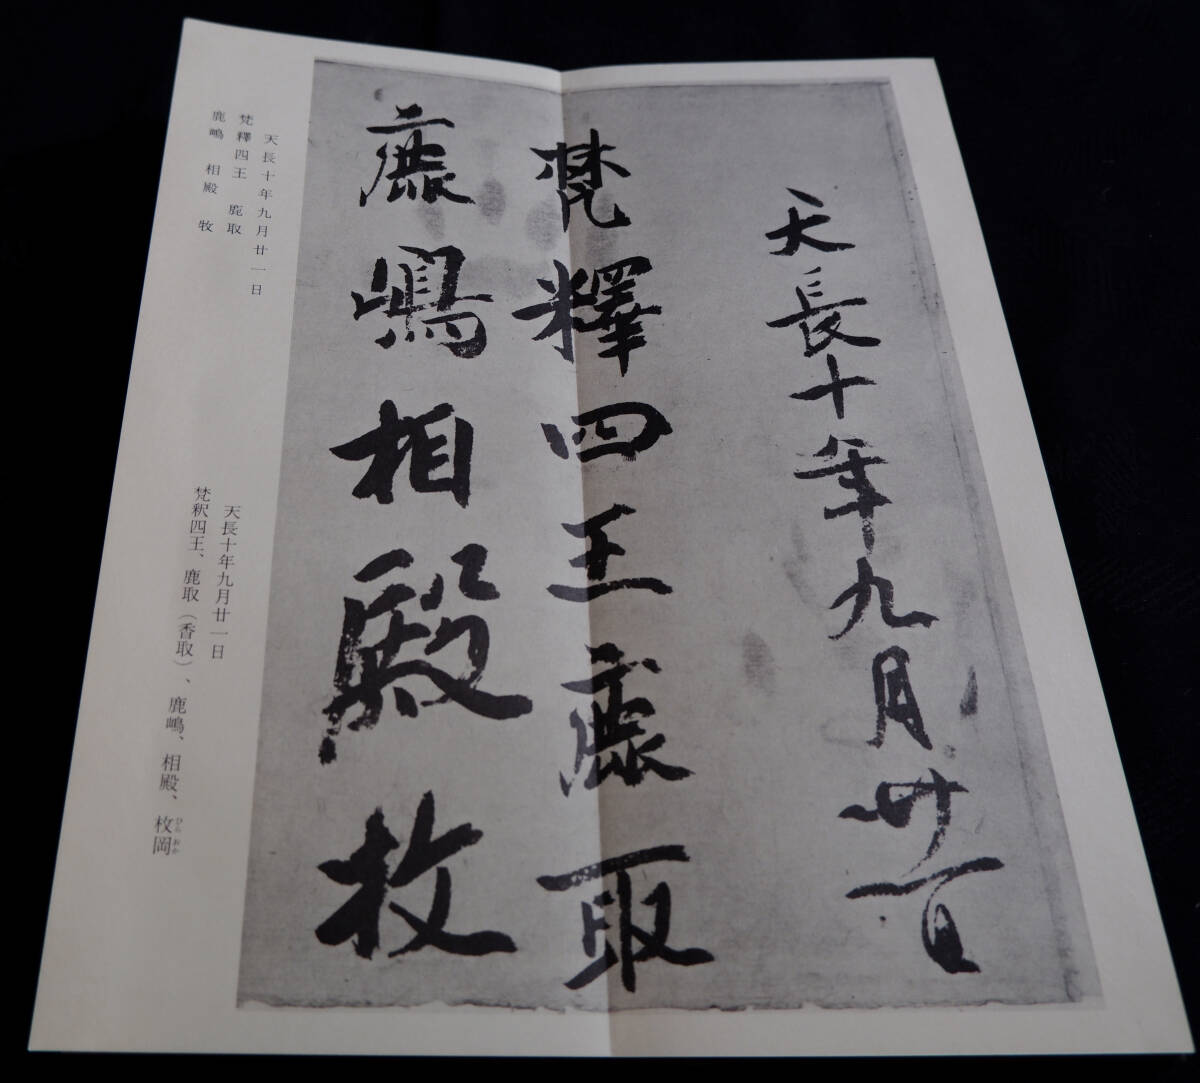 天長十年九月廿一日
梵釋四王鹿取
鹿嶋相殿枚
天長十年九月廿一日
梵釋四王　鹿取
鹿嶋　相殿　牧
天長十年九月廿一日
梵釈四王、鹿取（香取）、鹿嶋、相殿、枚岡
ひら おか